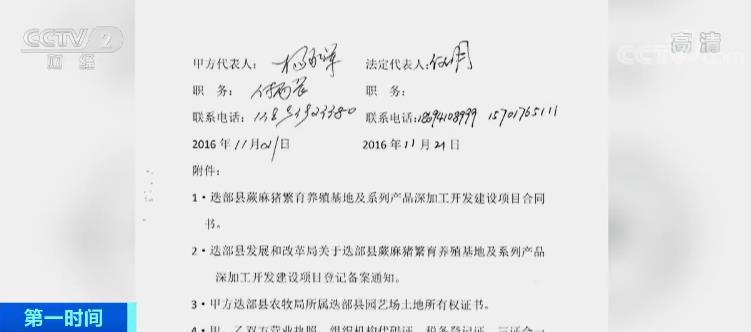 CCTV 2
财经
高清
CCTV.com
甲方代表人: 法定代表人:
职 务: 职 务:
联系电话: 联系电话:18694108999 15701765111
2016 年 11 月 21 日 2016 年 11 月 21 日
附件:
1·迭部县蕨麻猪繁育养殖基地及系列产品深加工开发建设项目合同
书。
2·迭部县发展和改革局关于迭部县蕨麻猪繁育养殖基地及系列产品
深加工开发建设项目登记备案通知。
3·甲方迭部县农牧局所属迭部县园艺场土地所有权证书。
4·甲、乙双方营业执照、组织机构代码证、税务登记证、三证合一
第一时间